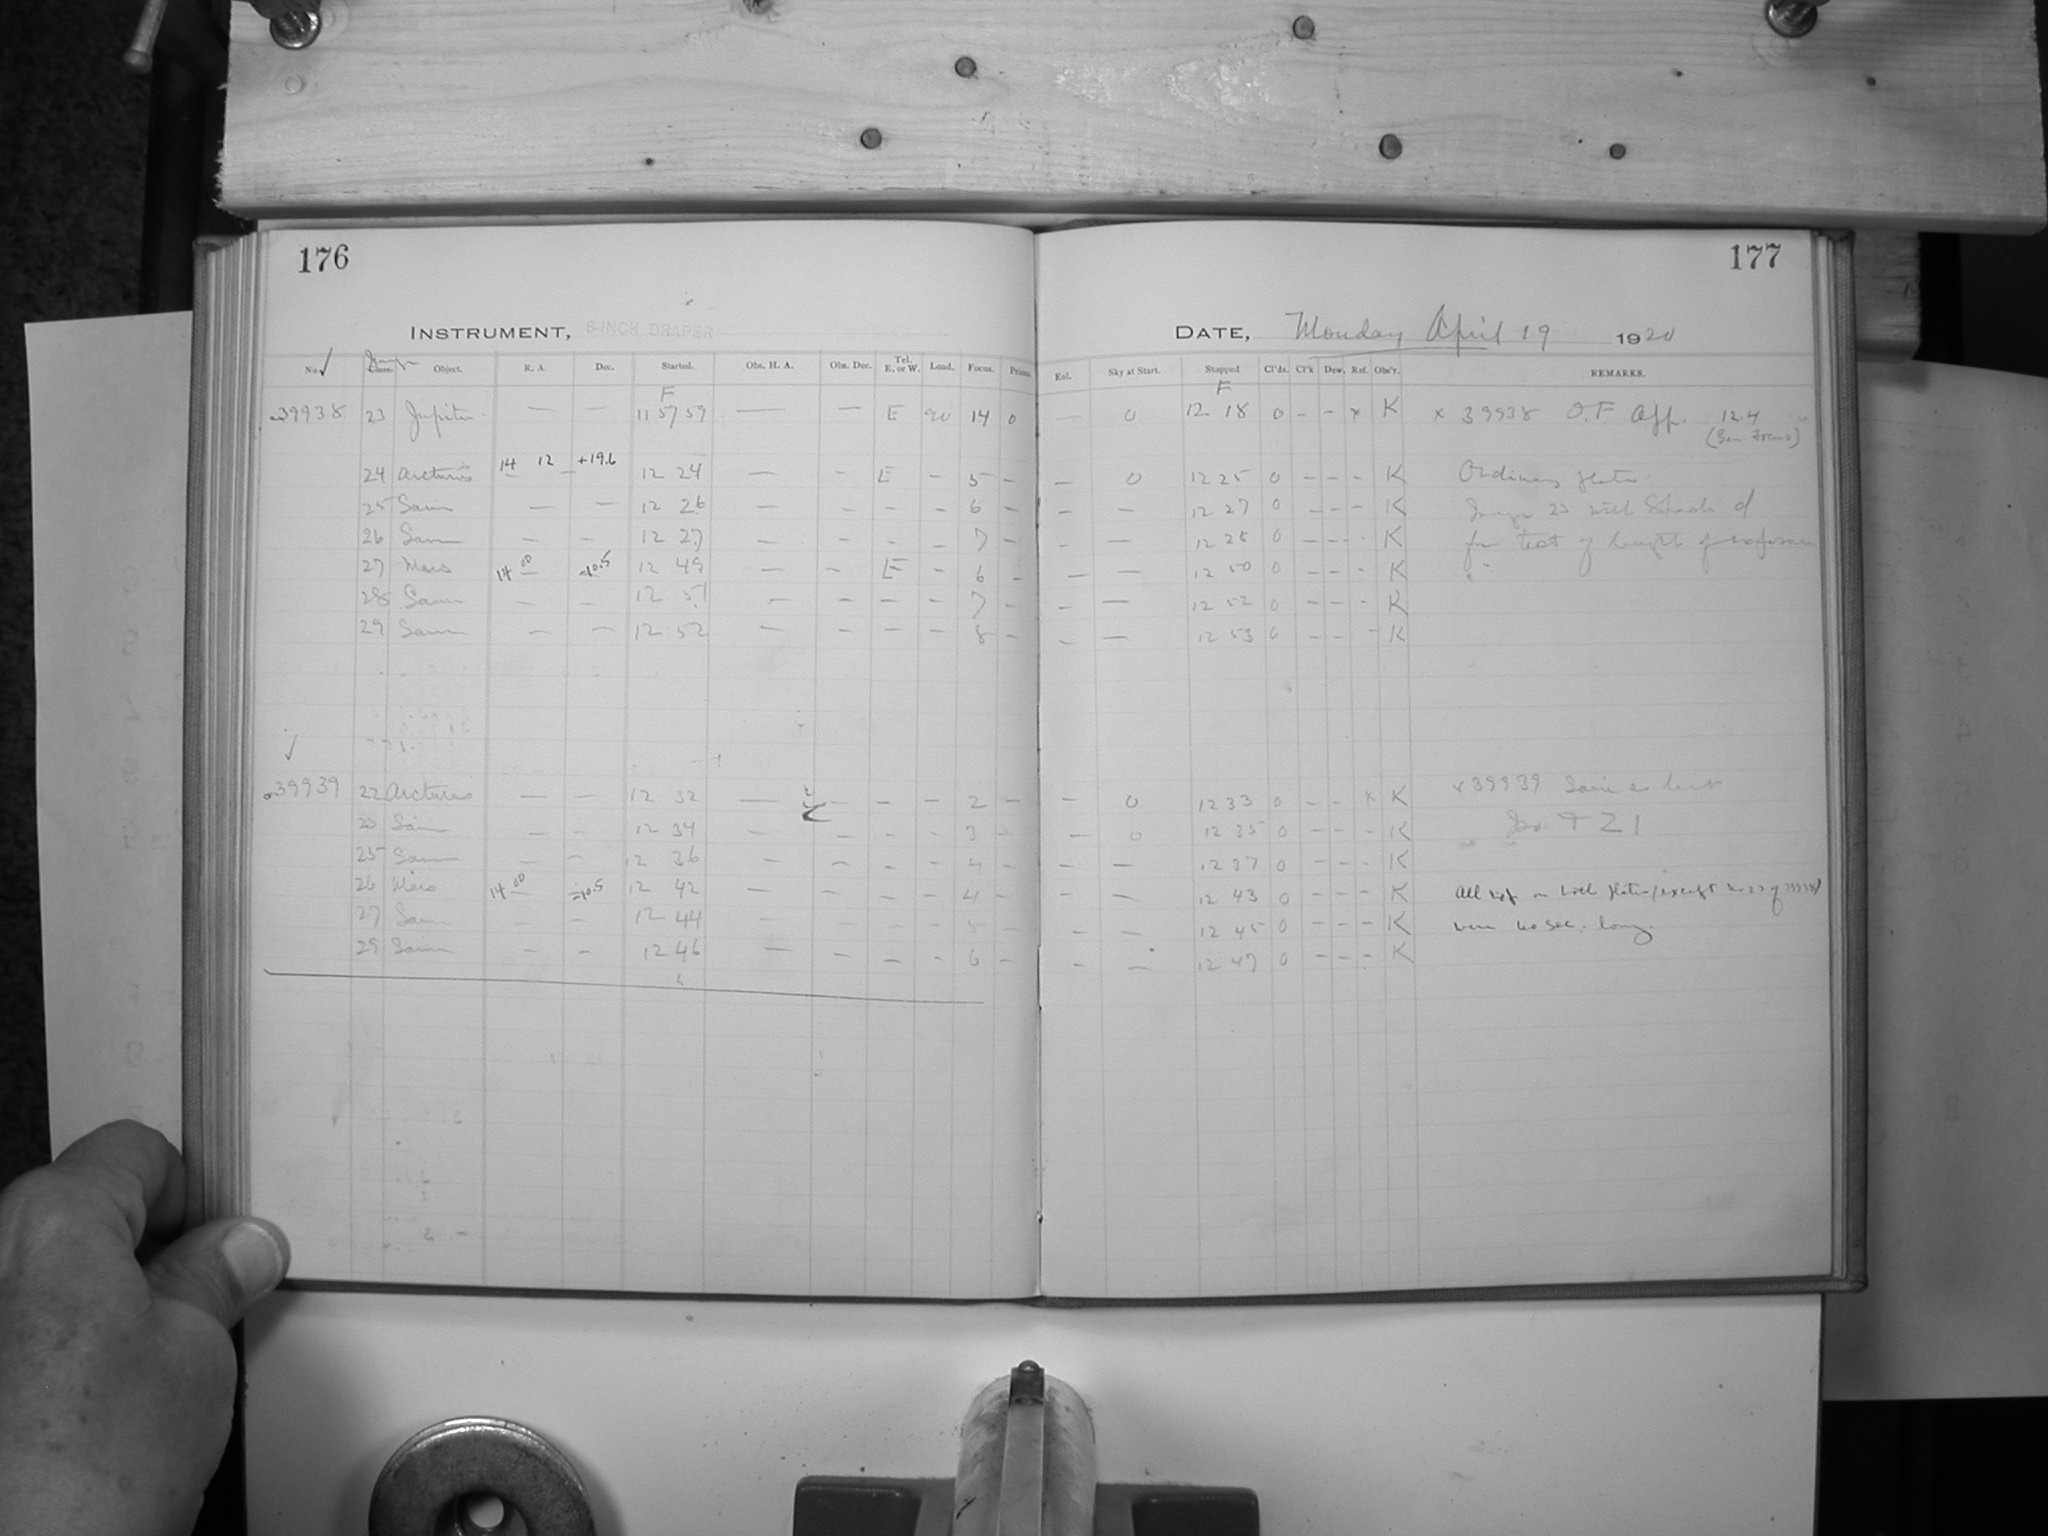 176 177
INSTRUMENT, 8-INCH DRAPER DATE, Monday April 19 1920
No. Class. Image Object. R. A. Dec. Started. Obs. H. A. Obs. Dec. Tel. E. or W. Load. Focus. Prism. Eol. Sky at Start. Stopped Cl'ds. Cl'k Dew. Ref. Obs'r. REMARKS.
F F
39938 23 Jupiter — — 11 57 59 — — E 90 14 0 — 0 12 18 0 - - x K x 39938 O.F. Aff. 12.4
24 Arcturus 14 12 +19.6 12 24 — - E - 5 - — 0 12 25 0 - - - K Ordinary plate
25 Same — — 12 26 — - - - 6 - — — 12 27 0 - - - K Image 23 with Shade of
26 Same — — 12 27 — - - - 7 - — — 12 28 0 - - - K for test of length of
27 Mars 14 00 -10.5 12 49 — - E - 6 - — — 12 50 0 - - - K
28 Same — — 12 51 — - - - 7 - — — 12 52 0 - - - K
29 Same — — 12 52 — - - - 8 - — — 12 53 0 - - - K
39939 22 Arcturus — — 12 32 — - - - 2 - — 0 12 33 0 - - x K x 39939 Same as last
23 Same — — 12 34 — - - - 3 - — 0 12 35 0 - - - K
25 Same — — 12 36 — - - - 4 - — — 12 37 0 - - - K
26 Mars 14 00 -10.5 12 42 — - - - 4 - — — 12 43 0 - - - K All exp on both plates (except No 23 of 39938)
27 Same — — 12 44 — - - - 5 - — — 12 45 0 - - - K were 40 sec. long.
29 Same — — 12 46 — - - - 6 - — — 12 47 0 - - - K